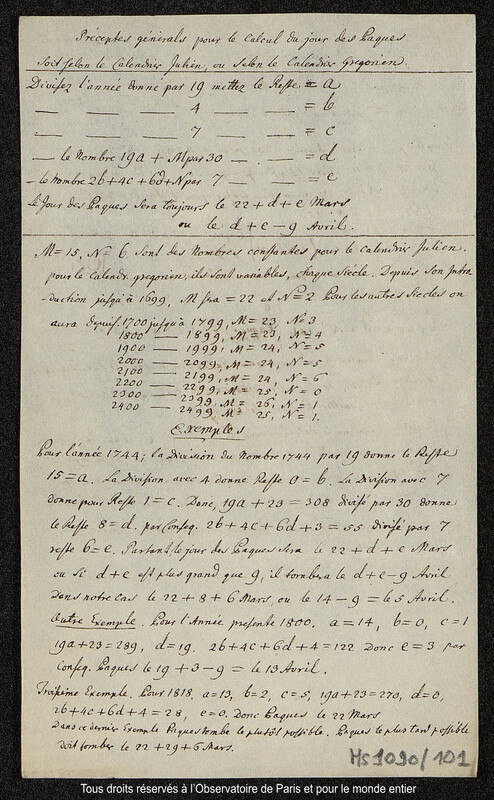 Preceptes générals pour le Calcul du jour des Paques
soit selon le Calendrier Julien, ou selon le Calendrier Gregorien.
Divisez l'année donné par 19 mettez le Reste = a
— — — 4 — — = b
— — — 7 — — = c
— le Nombre 19a + M par 30 — — = d
— le Nombre 2b+4c+6d+N par 7 — — = e
Le Jour des Paques sera toujours le 22+d+e Mars
ou le d+e-9 Avril.
M=15, N=6 sont des Nombres constantes pour le Calendrier Julien.
pour le Calendr. gregorien, ils sont variables, chaque Siécle. Depuis son Intro
-duction jusqu'à 1699, M sera = 22 et N=2 Pour les autres Siecles on
aura depuis 1700 jusqu'à 1799, M=23, N=3
1800 — 1899, M=23, N=4
1900 — 1999, M=24, N=5
2000 — 2099, M=24, N=5
2100 — 2199, M=24, N=6
2200 — 2299, M=25, N=0
2300 — 2399, M=26, N=1
2400 — 2499, M=25, N=1.
Exemples
Pour l'année 1744; la Division du Nombre 1744 par 19 donne le Reste
15=a. La Division avec 4 donne Reste 0=b. La Division avec 7
donne pour Reste 1=c. Donc, 19a+23=308 divisé par 30 donne
le Reste 8=d. par Conseq. 2b+4c+6d+3=55 divisé par 7
reste 6=e. Partant, le jour des Paques sera le 22+d+e Mars
ou si d+e est plus grand que 9, il tombera le d+e-9 Avril
Dans notre cas le 22+8+6 Mars, ou le 14-9=le 5 Avril.
Autre Exemple. Pour l'Année presente 1800. a=14, b=0, c=1
19a+23=289, d=19. 2b+4c+6d+4=122 Donc e=3 par
Conseq. Paques le 19+3-9=le 13 Avril.
Troisième Exemple. Pour 1818. a=13, b=2, c=5, 19a+23=270, d=0,
2b+4c+6d+4=28, e=0. Donc Paques le 22 Mars
Dans ce dernier Exemple Paques tombe le plutôt possible. Paques le plus tard possible
doit tomber le 22+29+6 Mars.
Ms 1090/101
Tous droits réservés à l'Observatoire de Paris et pour le monde entier